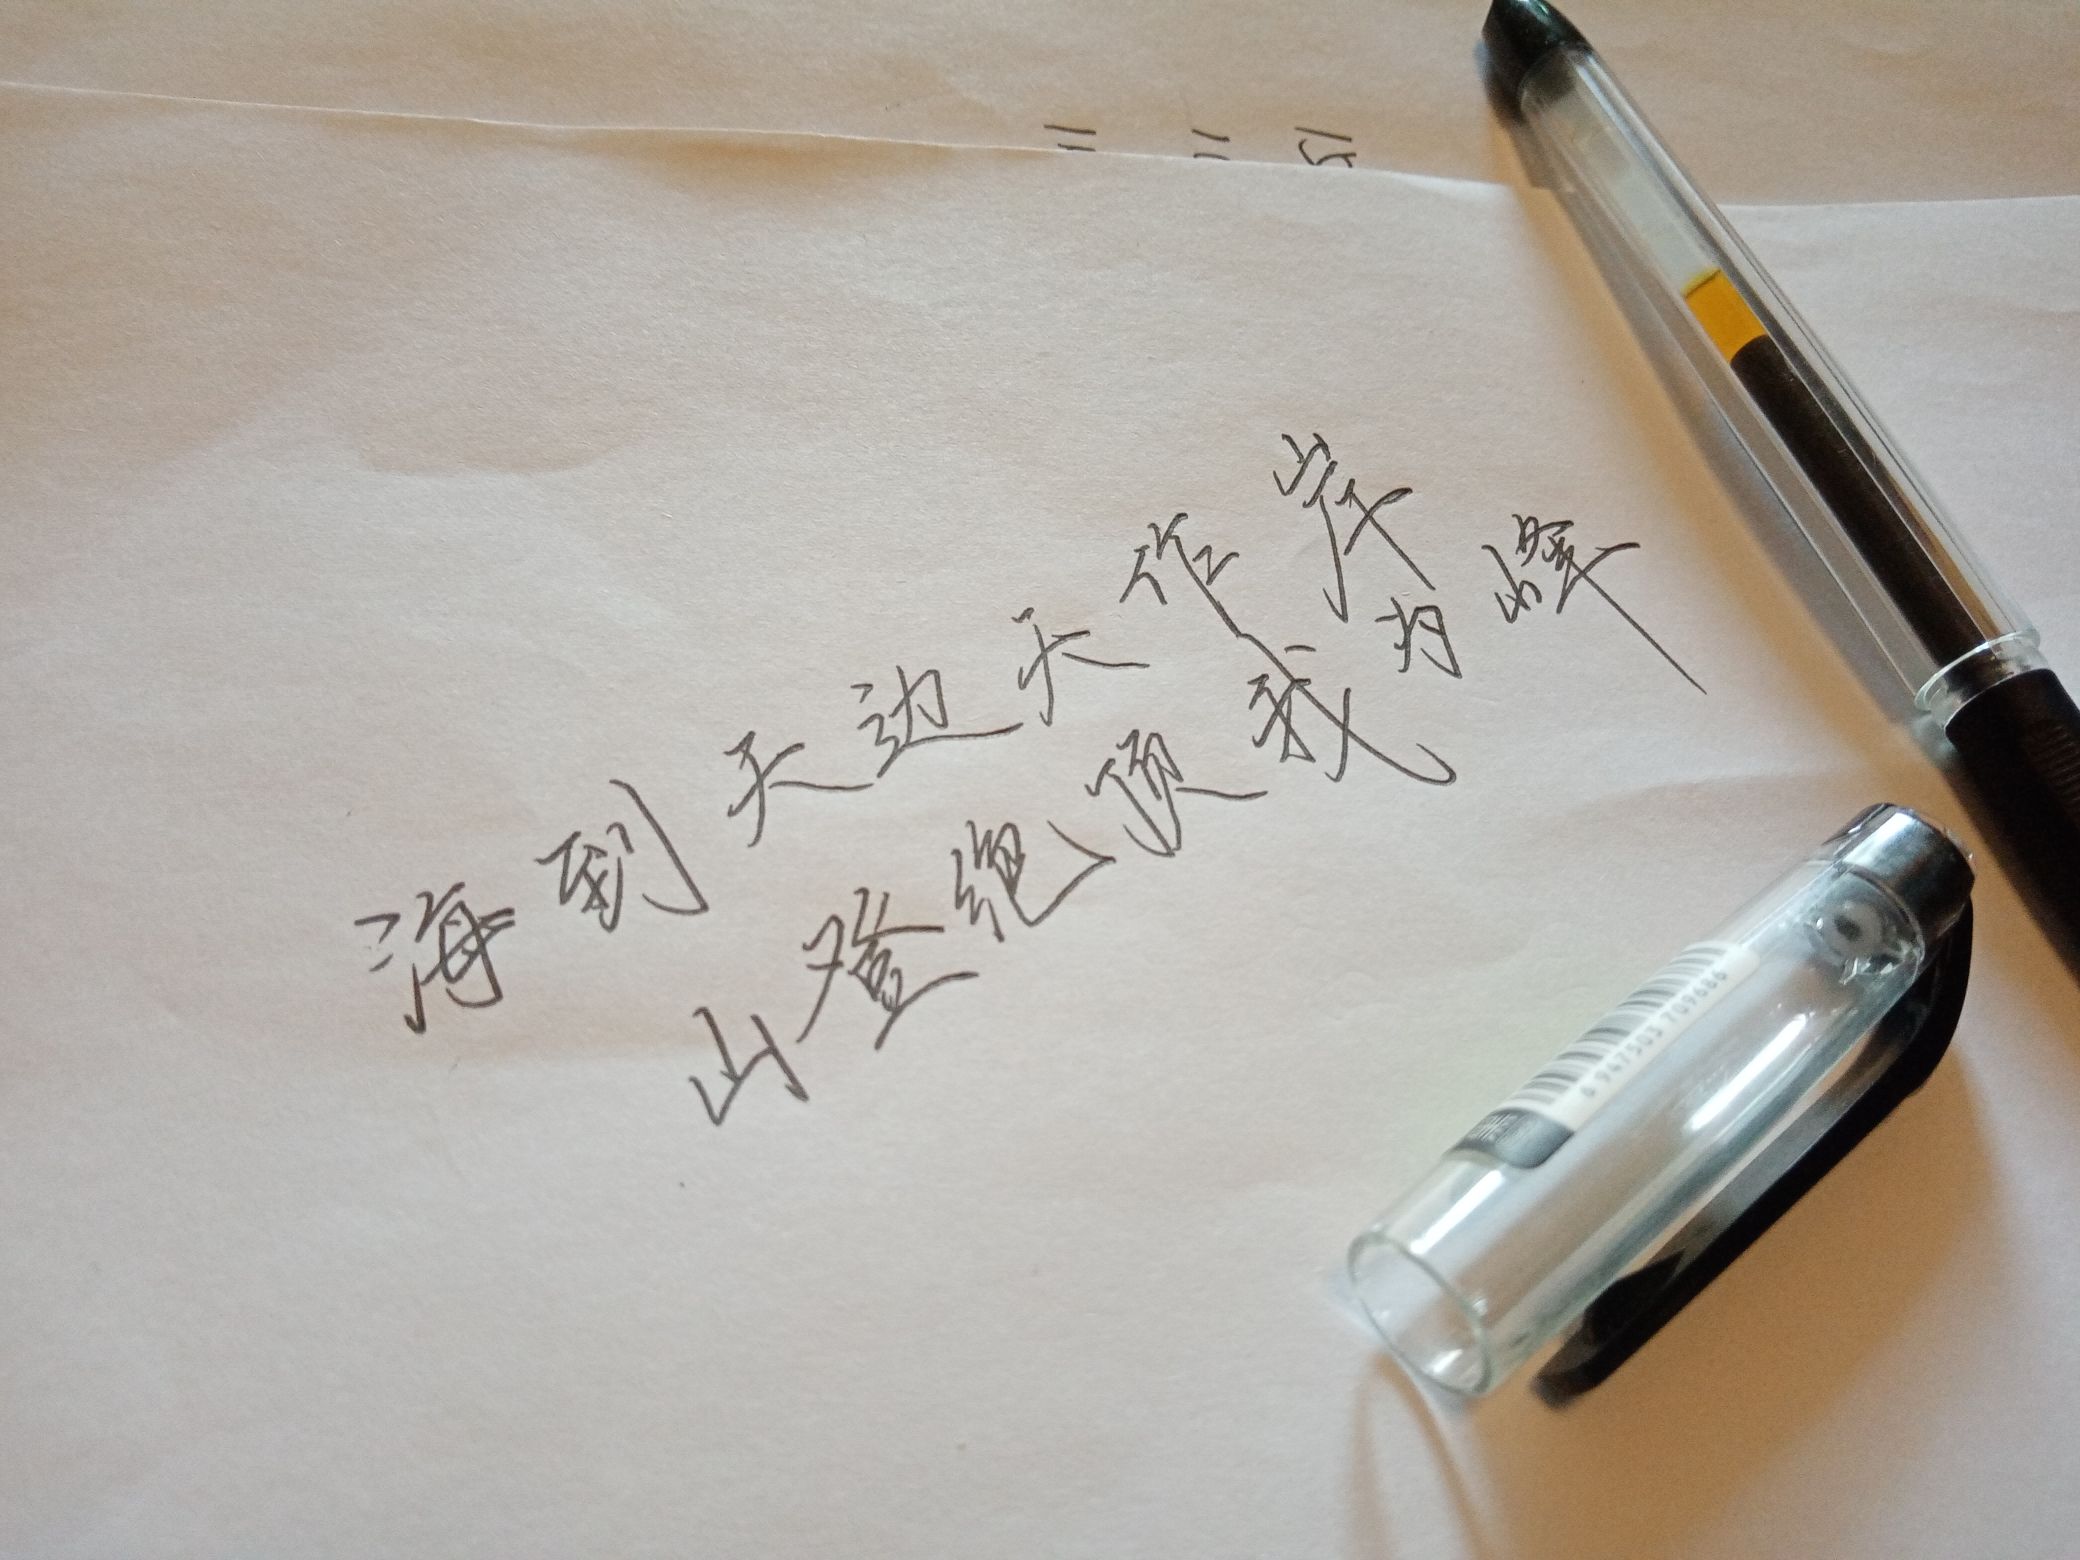 海到天边天作岸
山登绝顶我为峰
6 947503 709686